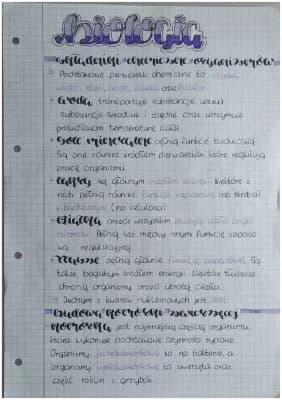 biologia
składniki chemiczne organizmów
• Podstawowe pierwiastki chemiczne to węgiel,
wodór, tlen, azot, siarka oraz fosfor
• woda transportuje substancje, usuwa
substancje szkodliwe i zbędne oraz utrzymuje
prawidłowa temperaturę ciała
• sole mineralne pełnią funkcję budulcową
Są one również źródłem pierwiastków, które regulują
pracę organizmu
• cukry są głównym źródłem energii. Niektóre z
nich pełnią również funkcję zapasową (np. skrobia)
i budulcową (np. celuloza)
• białka przede wszystkim budują ciała orga-
nizmów. Pełnią też między innymi funkcję zapaso-
wą i regulacyjną
• tłuszcze pełnią głównie funkcję zapasową. Są
także bogatym źródłem energii. Niektóre tłuszcze
chronią organizmy przed utratą ciepła.
• Jednym z kwasów nukleinowych jest DNA
budowa komórki zwierzęcej
komórka jest najmniejszą częścią organizmu,
która wykonuje podstawowe czynności życiowe.
Organizmy jednokomórkowe to np. bakterie, a
organizmy wielokomórkowe to zwierzęta oraz
część roślin i grzybów.